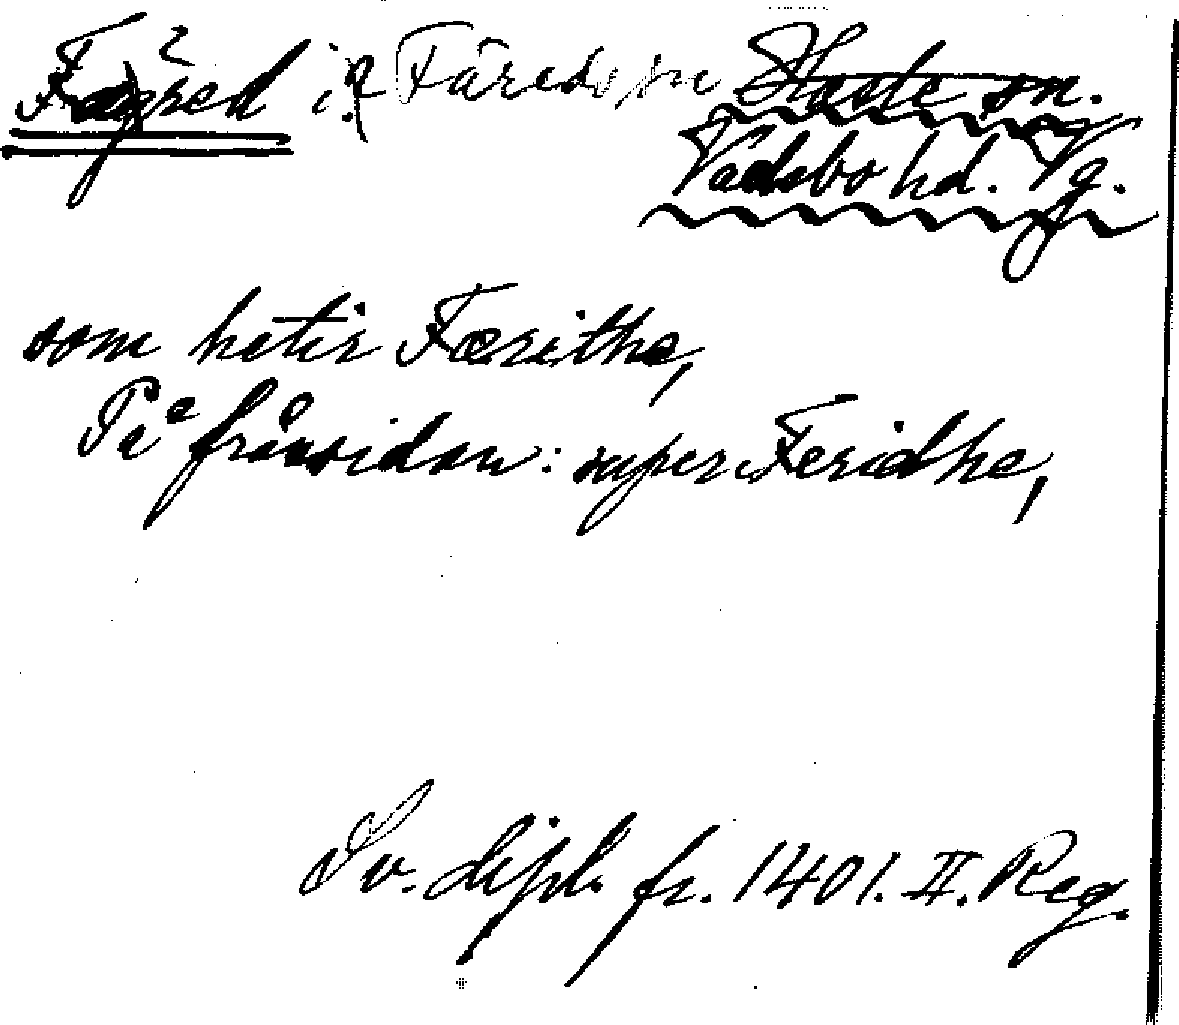 Fägred i. Färeds sn
Vadsbo hd. Vg.
som hetir Færithe,
På frånsidan: super Feridhe,
Sv. dipl. fr. 1401. II. Reg.